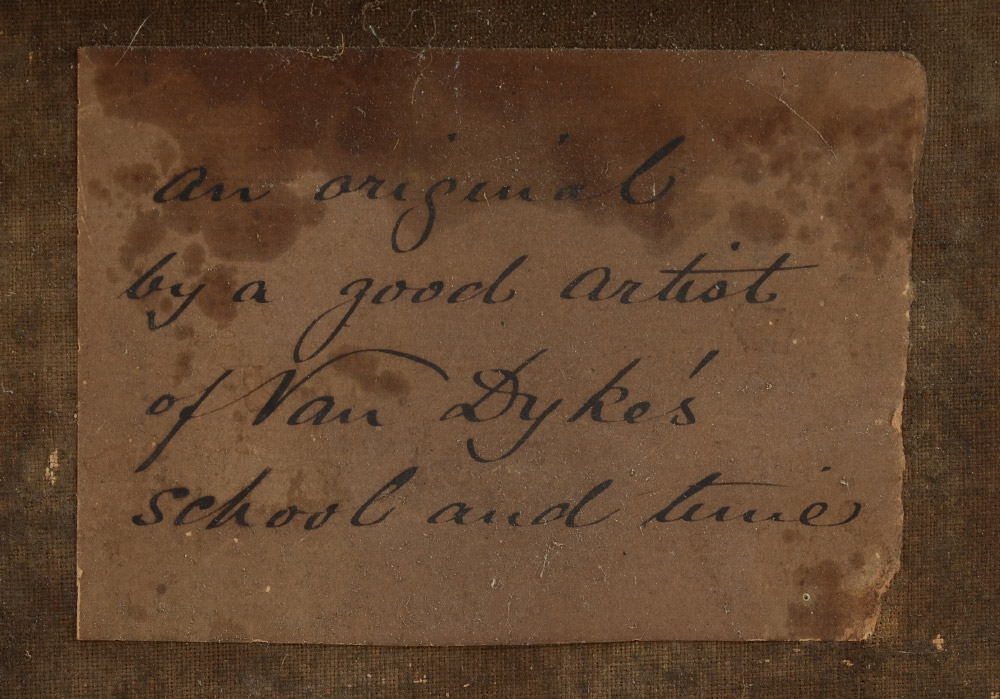 an original
by a good artist
of Van Dyke's
school and time